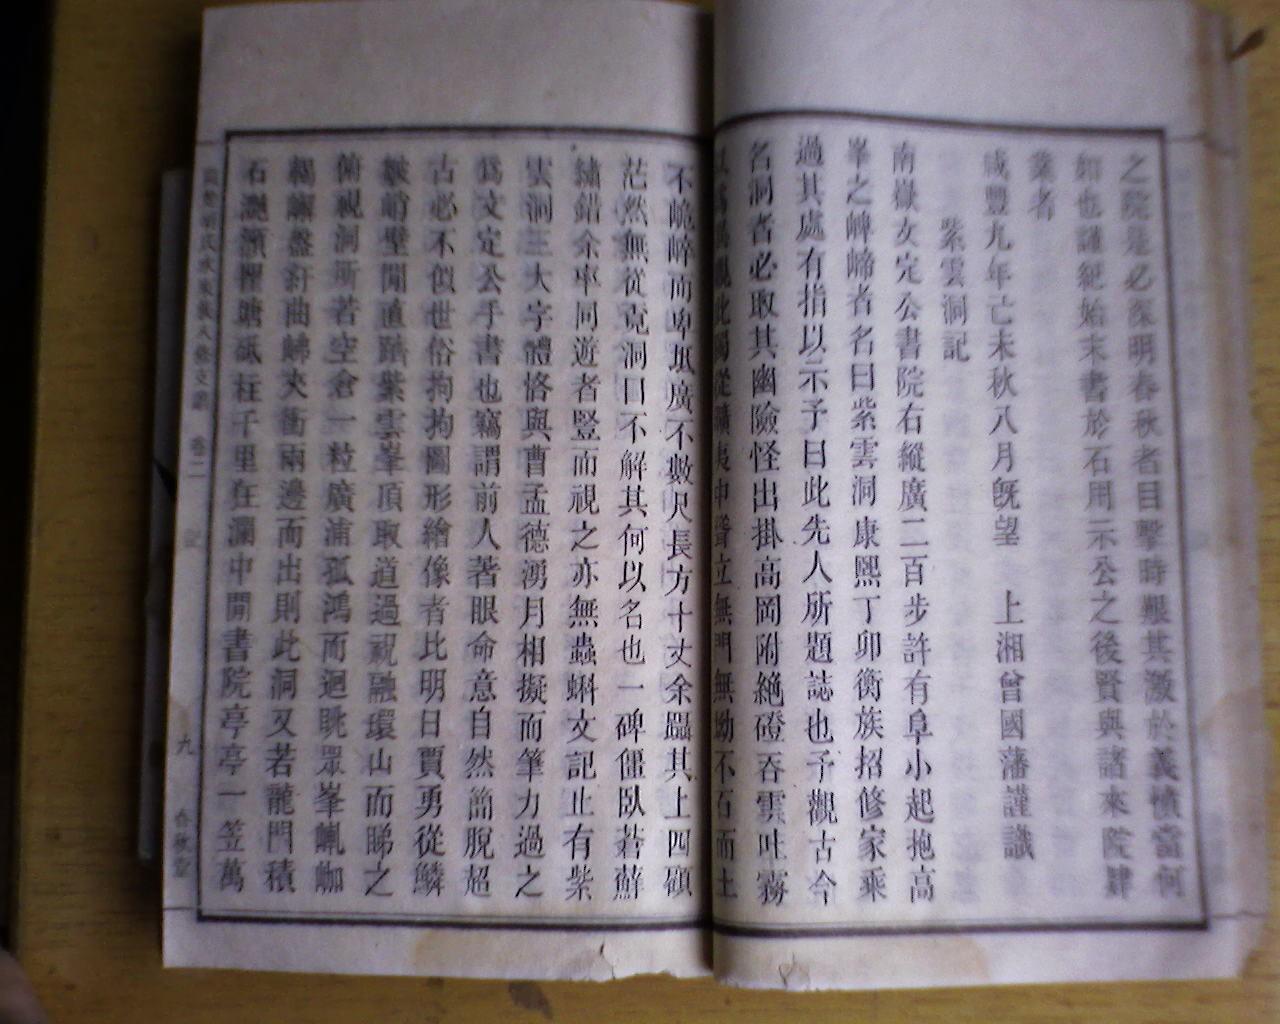 之院是必深明春秋者目擊時艱其激於義憤當何
如也謹紀始末書於石用示公之後賢與諸來院肄
業者
咸豐九年己未秋八月既望　上湘曾國藩謹識
紫雲洞記
南嶽文定公書院右縱廣二百步許有阜小起抱高
峯之崥崹者名曰紫雲洞康熙丁卯衡族招修家乘
過其處有指以示予曰此先人所題誌也予觀古今
名洞者必取其幽險怪出掛高岡附絶磴吞雲吐霧
以爲此獨從曠夷中聳立無門無坳不石而土
不崥而卑坻廣不數尺長方十丈余躡其上四顧
茫然無從竟洞口不解其何以名也一碑僵臥蒼蘚
繡錯余率同遊者豎而視之亦無蟲蝌文記止有紫
雲洞三大字體恪與曹孟德湧月相擬而筆力過之
爲文定公手書也竊謂前人著眼命意自然簡脫超
古必不似世俗拘拘圖形繪像者比明日賈勇從鱗
皴峭壁閒直踏紫雲峯頂取道過祝融環山而睇之
俯視洞所若空倉一粒廣浦孤鴻而迴眺眾峯
盤紆曲夾衝兩邊而出則此洞又若龍門積
石灔澦瞿塘砥柱千里在瀾中閒書院亭亭一笠萬
卷二
記
九
春秋堂